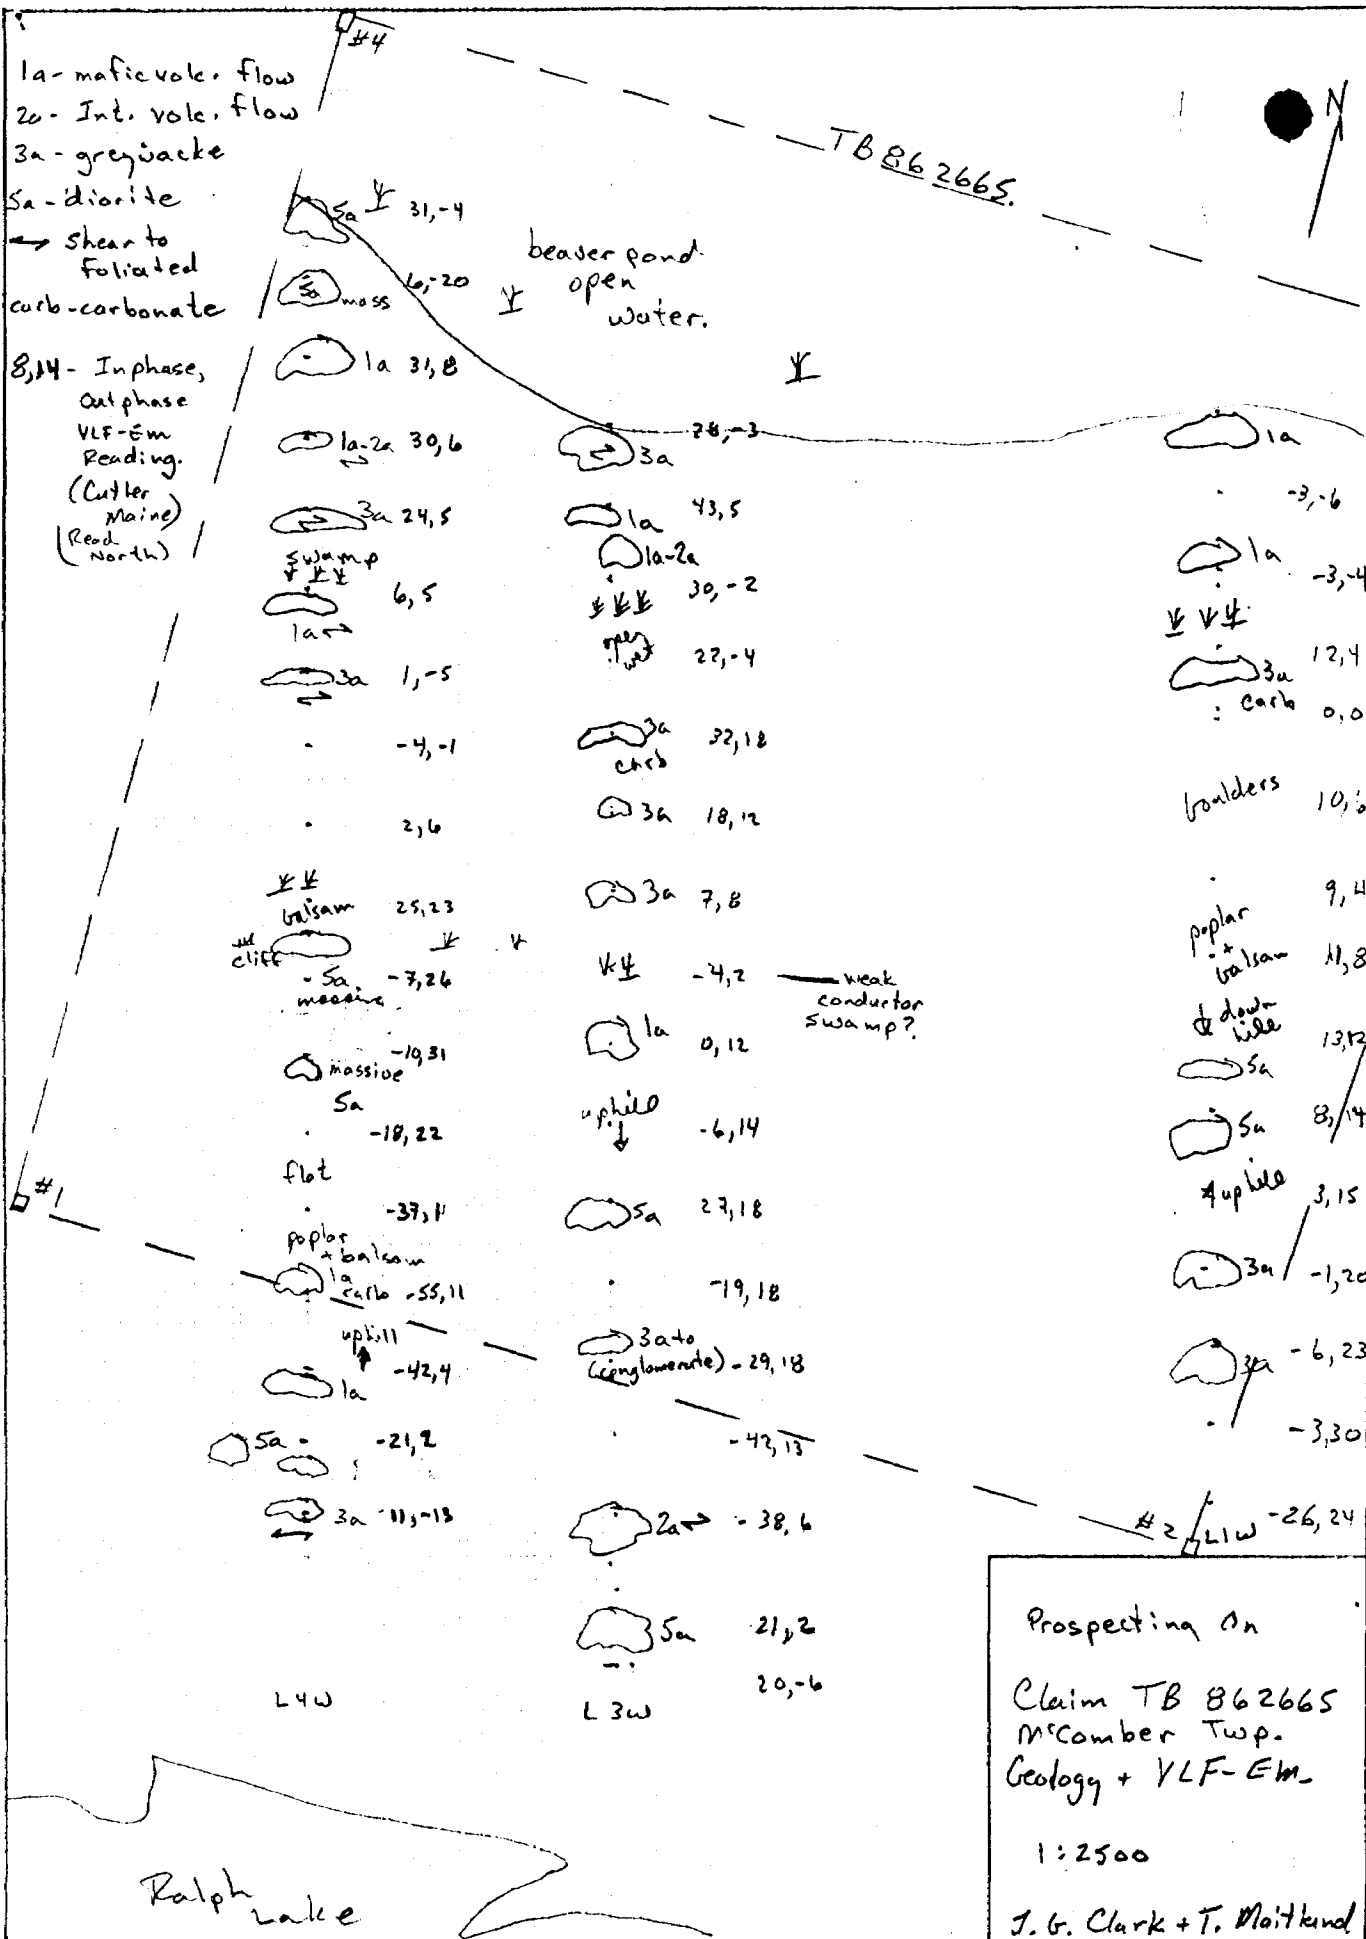 #4
1a- mafic volc. flow
2a- Int. volc. flow
3a- greywacke
5a- diorite
shear to
foliated
carb-carbonate
8,14- Inphase,
Outphase
VLF-Em
Reading.
(Cutler
Maine)
(Read
North)
N
TB 862665.
beaver pond
open
water.
5a 31,-4
5a mass 6,-20
1a 31,8
1a-2a 30,6
3a 24,5
swamp
6,5
1a
3a 1,-5
-4,-1
2,6
balsam 25,23
cliff
5a -7,26
massive
-10,31
massive
5a
-18,22
flat
-37,11
poplar
+ balsam
1a
carb -55,11
uphill
-42,4
1a
5a -21,2
3a -11,-13
L4W
28,-3
3a
1a 43,5
1a-2a
30,-2
open
wet 22,-4
3a 32,18
carb
3a 18,12
3a 7,8
-4,2
weak
conductor
swamp?
1a 0,12
uphill
-6,14
5a 27,18
-19,18
3a to
(conglomerate) -29,18
-42,13
2a -38,6
5a 21,2
20,-6
L3W
1a
-3,-6
1a -3,-4
12,4
3a
carb 0,0
boulders 10,
9,4
poplar
+
balsam 11,8
down
hill
13,12
5a
5a 8,14
uphill 3,15
3a -1,20
3a -6,23
-3,30
#2 L1W -26,24
#1
Prospecting On
Claim TB 862665
McComber Twp.
Geology + VLF-Em.
1:2500
J.G. Clark + T. Maitland
Ralph
Lake